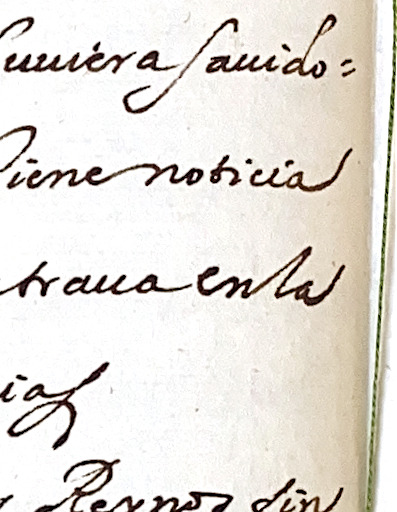 huuiéra sauido=
tiene noticia
traua en la
ias
Reynos sin